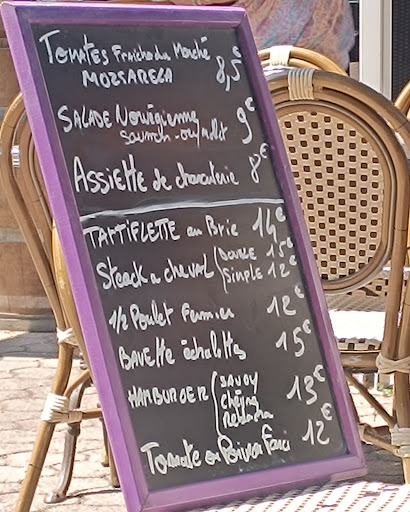 Tomates Fraiche du Marché
MOZSARELA 8,5€
SALADE Norvégienne 9€
Saumon-oeuf mollet
ASSIETTE de charcuterie 8€
TARTIFLETTE au Brie 14€
Steack a cheval (Double 15€
Simple 12€
1/2 Poulet Fermier 12€
BAVETTE échalottes 15€
HAMBURGER (SAVOY 13€
Chèvre
Tomate ou Poivron Farci 12€